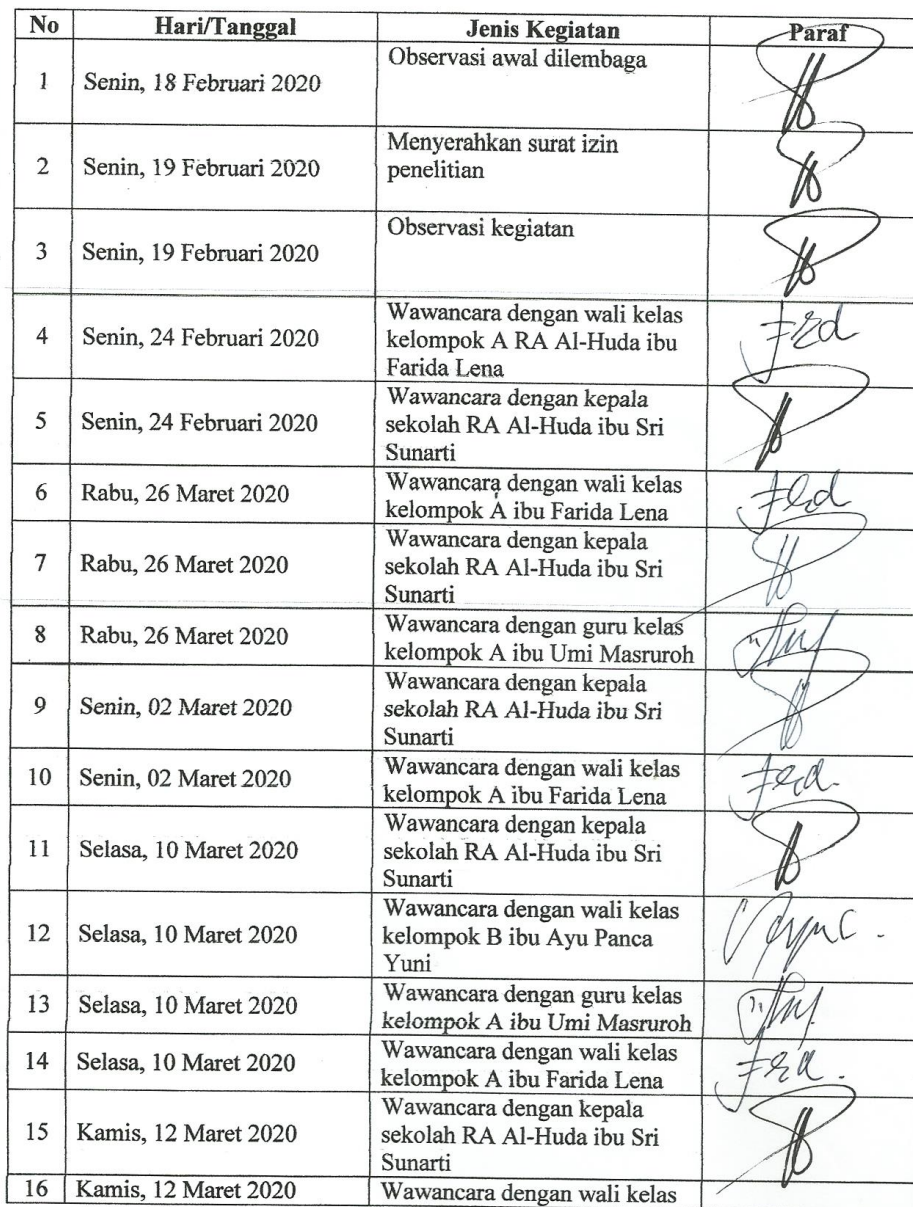 No Hari/Tanggal Jenis Kegiatan Paraf
1 Senin, 18 Februari 2020 Observasi awal dilembaga
2 Senin, 19 Februari 2020 Menyerahkan surat izin
penelitian
3 Senin, 19 Februari 2020 Observasi kegiatan
4 Senin, 24 Februari 2020 Wawancara dengan wali kelas
kelompok A RA Al-Huda ibu
Farida Lena
5 Senin, 24 Februari 2020 Wawancara dengan kepala
sekolah RA Al-Huda ibu Sri
Sunarti
6 Rabu, 26 Maret 2020 Wawancara dengan wali kelas
kelompok A ibu Farida Lena
7 Rabu, 26 Maret 2020 Wawancara dengan kepala
sekolah RA Al-Huda ibu Sri
Sunarti
8 Rabu, 26 Maret 2020 Wawancara dengan guru kelas
kelompok A ibu Umi Masruroh
9 Senin, 02 Maret 2020 Wawancara dengan kepala
sekolah RA Al-Huda ibu Sri
Sunarti
10 Senin, 02 Maret 2020 Wawancara dengan wali kelas
kelompok A ibu Farida Lena
11 Selasa, 10 Maret 2020 Wawancara dengan kepala
sekolah RA Al-Huda ibu Sri
Sunarti
12 Selasa, 10 Maret 2020 Wawancara dengan wali kelas
kelompok B ibu Ayu Panca
Yuni
13 Selasa, 10 Maret 2020 Wawancara dengan guru kelas
kelompok A ibu Umi Masruroh
14 Selasa, 10 Maret 2020 Wawancara dengan wali kelas
kelompok A ibu Farida Lena
15 Kamis, 12 Maret 2020 Wawancara dengan kepala
sekolah RA Al-Huda ibu Sri
Sunarti
16 Kamis, 12 Maret 2020 Wawancara dengan wali kelas